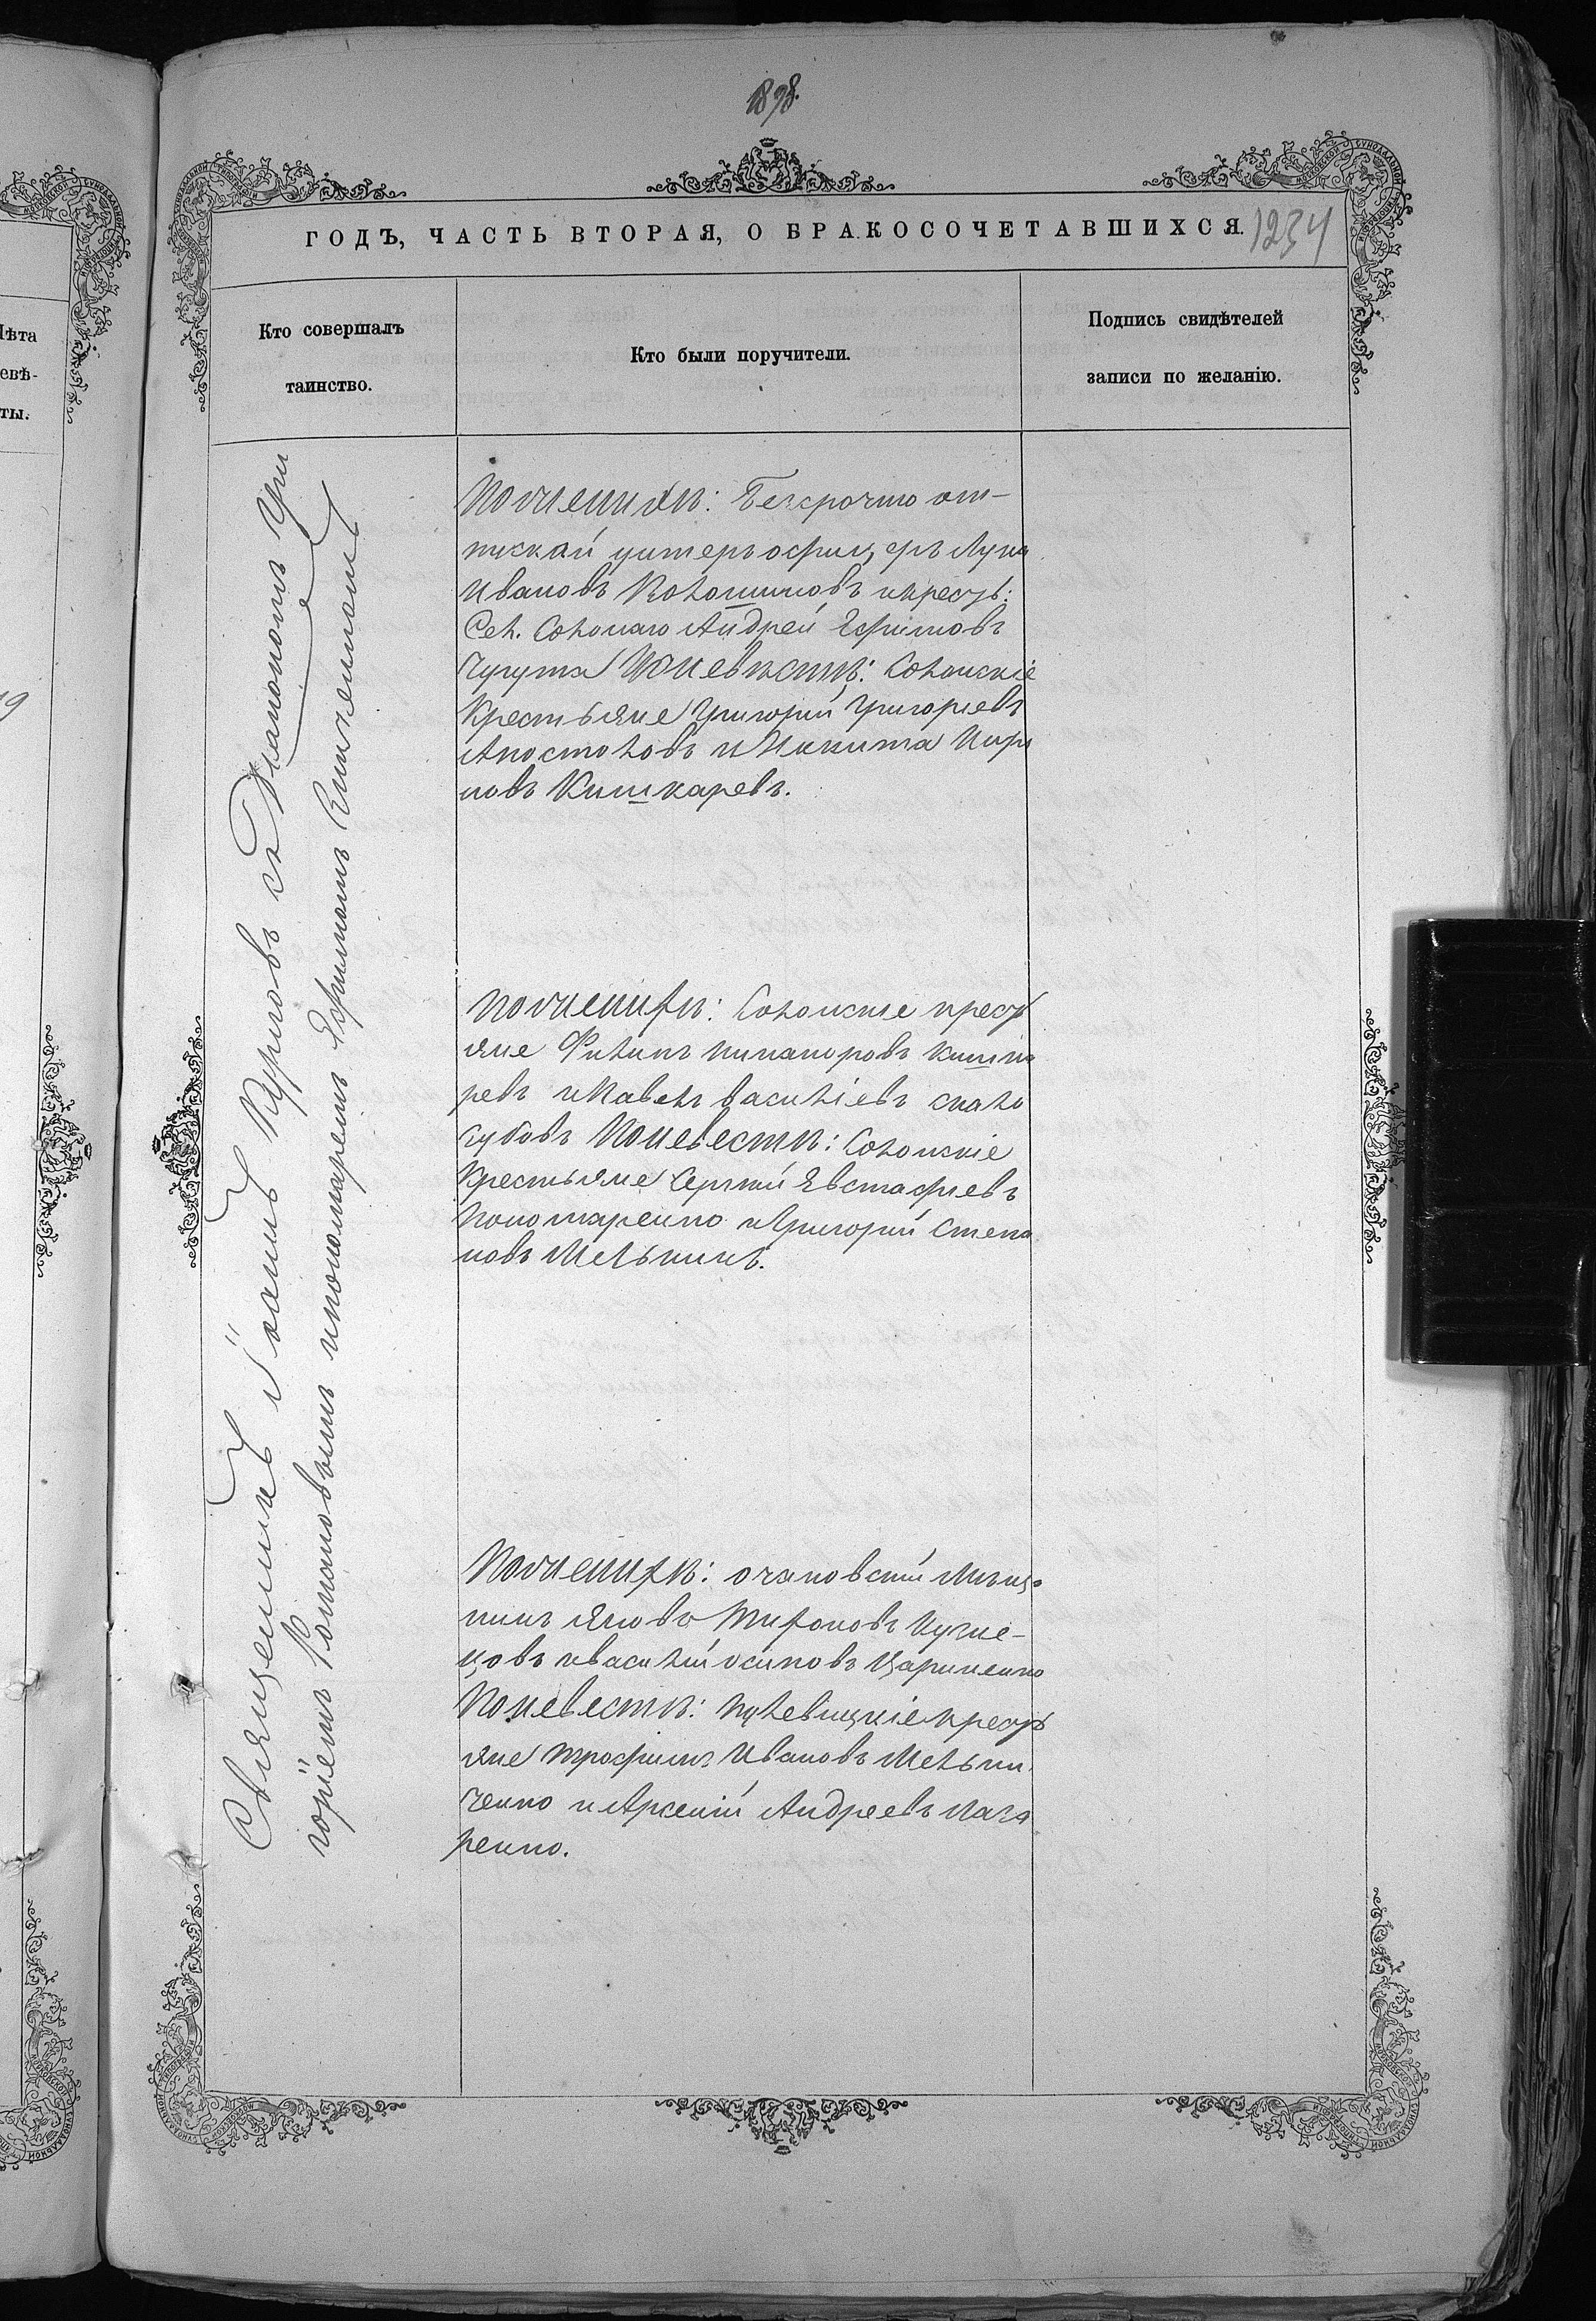 1898.
ГОДЪ, ЧАСТЬ ВТОРАЯ, О БРАКОСОЧЕТАВШИХСЯ.
1234
Лѣта
евѣ-
ты.
19
Кто совершалъ
таинство.
Кто были поручители.
Подпись свидѣтелей
записи по желанію.
Священникъ Іоаннъ Курловъ съ Діакономъ Гри
горіемъ Романовымъ ипономаремъ Ефимомъ
Поженихѣ: Безсрочно от-
пускай унтеръ офицеръ Лука
Ивановъ Колошиновъ икрест:
Сел. Солонаго Андрей Ефимовъ
Чугута Поневѣстѣ: Солонскіе
Крестьяне Григорій Григорьевъ
Апостоловъ и Никита
новъ Кишкаревъ.
Поженихѣ: Солонскіе крест
яне Филипъ никаноровъ кишка
ревъ иПавелъ василіевъ скало
зубовъ Поневестѣ: Солонскіе
Крестьяне Сергѣй Евстафіевъ
Пономаренко иГригорій Степа
новъ Мельникъ.
Поженихѣ: очаковскій Мѣща
нинъ Яковъ Кузне-
цовъ иВасилій осиповъ Цариненко
Поневестѣ: крестъ
яне трофимъ Ивановъ Мельни
ченко иАрсеній Андреевъ Лаза
ренко.